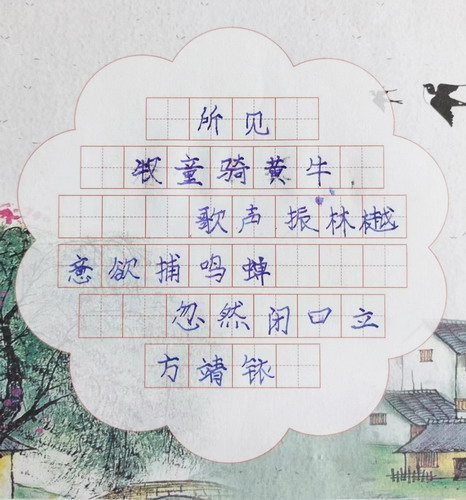 所见
牧童骑黄牛
歌声振林樾
意欲捕鸣蝉
忽然闭口立
方靖铱